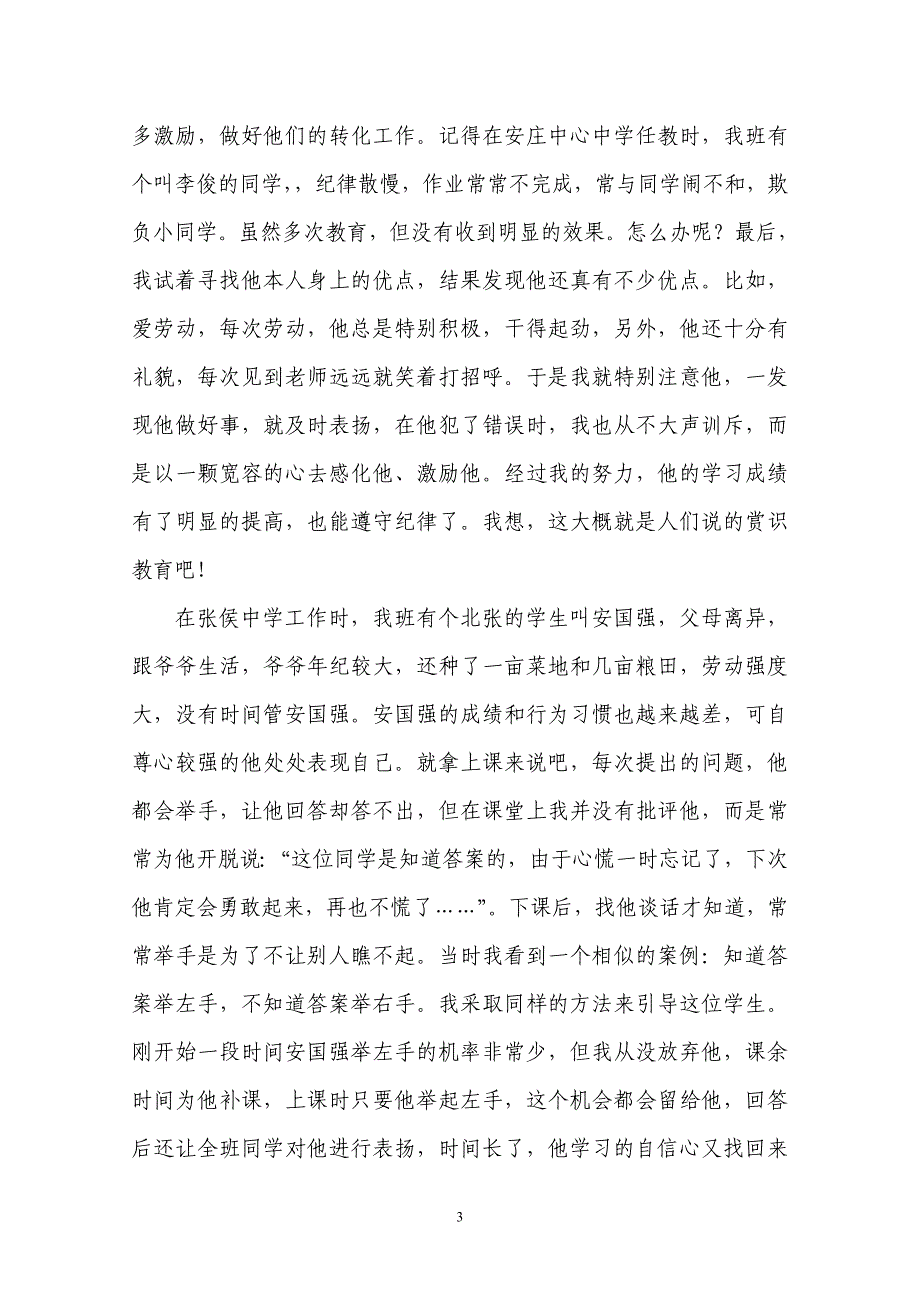 多激励，做好他们的转化工作。记得在安庄中心中学任教时，我班有
个叫李俊的同学，，纪律散慢，作业常常不完成，常与同学闹不和，欺
负小同学。虽然多次教育，但没有收到明显的效果。怎么办呢？最后，
我试着寻找他本人身上的优点，结果发现他还真有不少优点。比如，
爱劳动，每次劳动，他总是特别积极，干得起劲，另外，他还十分有
礼貌，每次见到老师远远就笑着打招呼。于是我就特别注意他，一发
现他做好事，就及时表扬，在他犯了错误时，我也从不大声训斥，而
是以一颗宽容的心去感化他、激励他。经过我的努力，他的学习成绩
有了明显的提高，也能遵守纪律了。我想，这大概就是人们说的赏识
教育吧！
在张侯中学工作时，我班有个北张的学生叫安国强，父母离异，
跟爷爷生活，爷爷年纪较大，还种了一亩菜地和几亩粮田，劳动强度
大，没有时间管安国强。安国强的成绩和行为习惯也越来越差，可自
尊心较强的他处处表现自己。就拿上课来说吧，每次提出的问题，他
都会举手，让他回答却答不出，但在课堂上我并没有批评他，而是常
常为他开脱说：“这位同学是知道答案的，由于心慌一时忘记了，下次
他肯定会勇敢起来，再也不慌了……”。下课后，找他谈话才知道，常
常举手是为了不让别人瞧不起。当时我看到一个相似的案例：知道答
案举左手，不知道答案举右手。我采取同样的方法来引导这位学生。
刚开始一段时间安国强举左手的机率非常少，但我从没放弃他，课余
时间为他补课，上课时只要他举起左手，这个机会都会留给他，回答
后还让全班同学对他进行表扬，时间长了，他学习的自信心又找回来
3